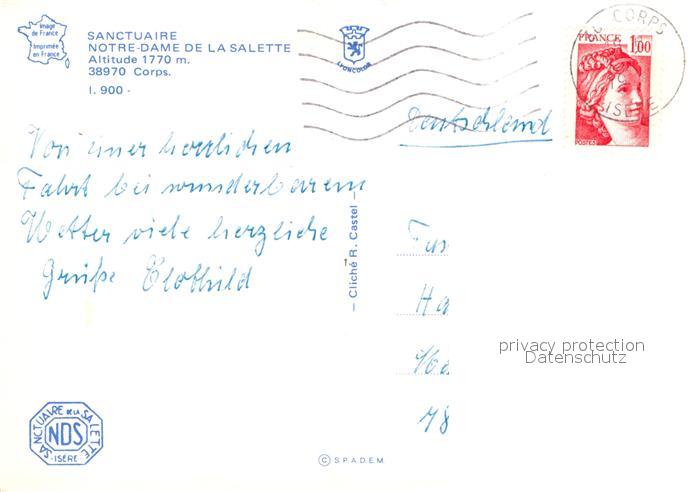 Image
de France
Imprimée
en France
SANCTUAIRE
NOTRE-DAME DE LA SALETTE
Altitude 1770 m.
38970 Corps.
I. 900 -
LYONCOLOR
CORPS
ISÈRE
FRANCE 1,00
POSTES
Deutschland
Von einer herrlichen
Fahrt bei wunderbarem
Wetter viele herzliche
Grüße Clothild
— Cliché R. Castel —
Ha
78
privacy protection
Datenschutz
SANCTUAIRE DE LA SALETTE
NDS
-ISÈRE-
© S.P.A.D.E.M.